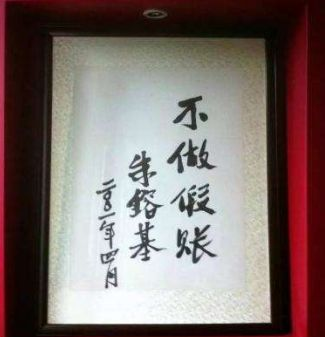 不做假账
朱镕基
二〇〇一年四月